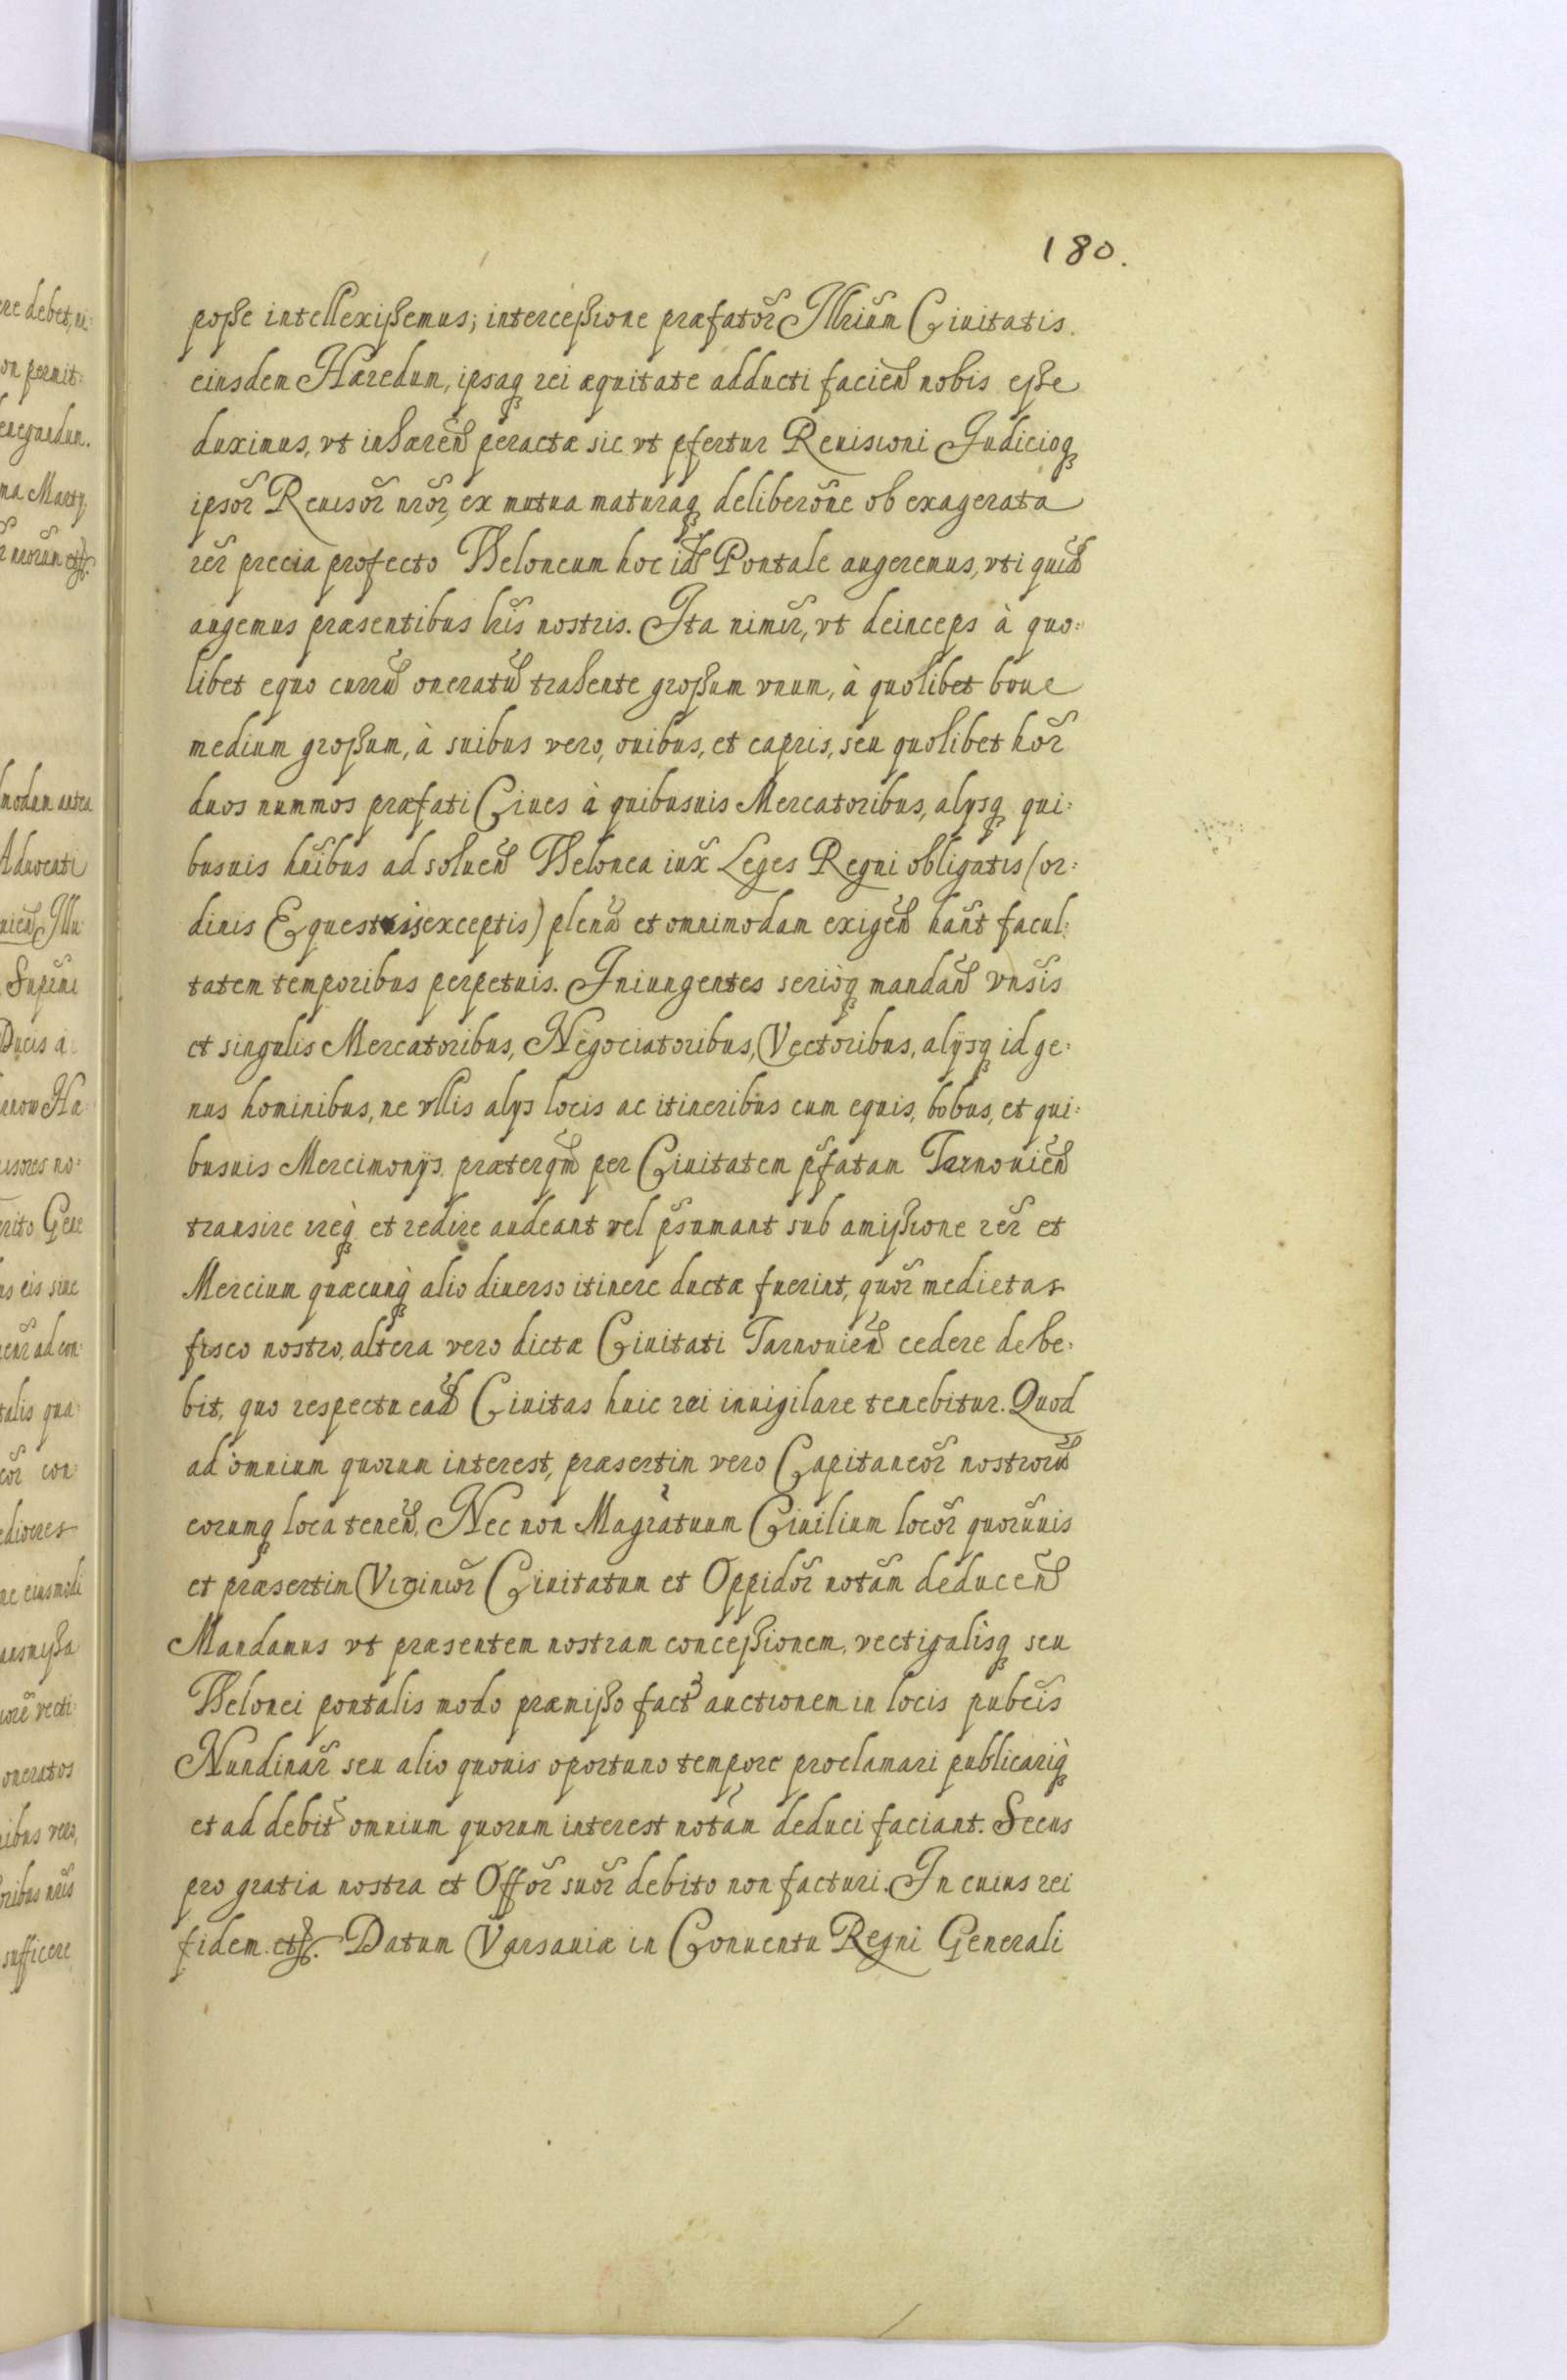 180.
posse intellexissemus; intercessione præfator̃ Illriũm Ciuitatis
eiusdem Hæredum, ipsaq3 rei æquitate adducti facieñ nobis esse
duximus, vt inhæreñ peractæ sic vt p̃fertur Reuisioni Iudicioq3
ipsor̃ Reuisor̃ nr̃or̃, ex mutua maturaq3 deliberõne ob exagerata
rer̃ precia profecto Theloneum hoc id̃ Pontale augeremus, vti quid̃
augemus præsentibus lr̃is nostris. Ita nimir̃, vt deinceps à quo:
libet equo currũ oneratũ trahente grossum vnum, à quolibet boue
medium grossum, à suibus vero, ouibus, et capris, seu quolibet hor̃
duos nummos præfati Ciues à quibusuis Mercatoribus, alysq3 qui:
busuis hoĩbus ad soluen̄ Thelonea iux̃ Leges Regni obligatis (or:
dinis Equestris exceptis) plenã et omnimodam exigeñ hañt facul:
tatem temporibus perpetuis. Iniungentes seriòq3 mandañ vnĩsis
et singulis Mercatoribus, Negociatoribus, Vectoribus, alÿsq3 id ge:
nus hominibus, ne vllis alys locis ac itineribus cum equis, bobus, et qui:
busuis Mercimonÿs, præterqm̃ per Ciuitatem p̃fatam Tarnouieñ
transire ireq3 et redire audeant vel p̃sumant sub amissione rer̃ et
Mercium quæcunq3 alio diuerso itinere ductæ fuerint, quor̃ medietas
fisco nostro, altera vero dictæ Ciuitati Tarnouieñ cedere debe:
bit, quo respectu ead̃ Ciuitas huic rei inuigilare tenebitur. Quod
ad omnium quorum interest, præsertim vero Capitaneor̃ nostrorũ
eorumq3 loca teneñ, Nec non Magr̃atuum Ciuilium locor̃ quorũuis
et præsertim Vicinior̃ Ciuitatum et Oppidor̃ notãm deduceñ
Mandamus vt præsentem nostram concessionem, vectigalisq3 seu
Thelonei pontalis modo præmisso fact̃ auctionem in locis pubcĩs
Nundinar̃ seu alio quouis oportuno tempore proclamari publicariq3
et ad debit̃ omnium quorum interest notãm deduci faciant. Secus
pro gratia nostra et Offor̃ suor̃ debito non facturi. In cuius rei
fidem etc. Datum Varsauiæ in Conuentu Regni Generali